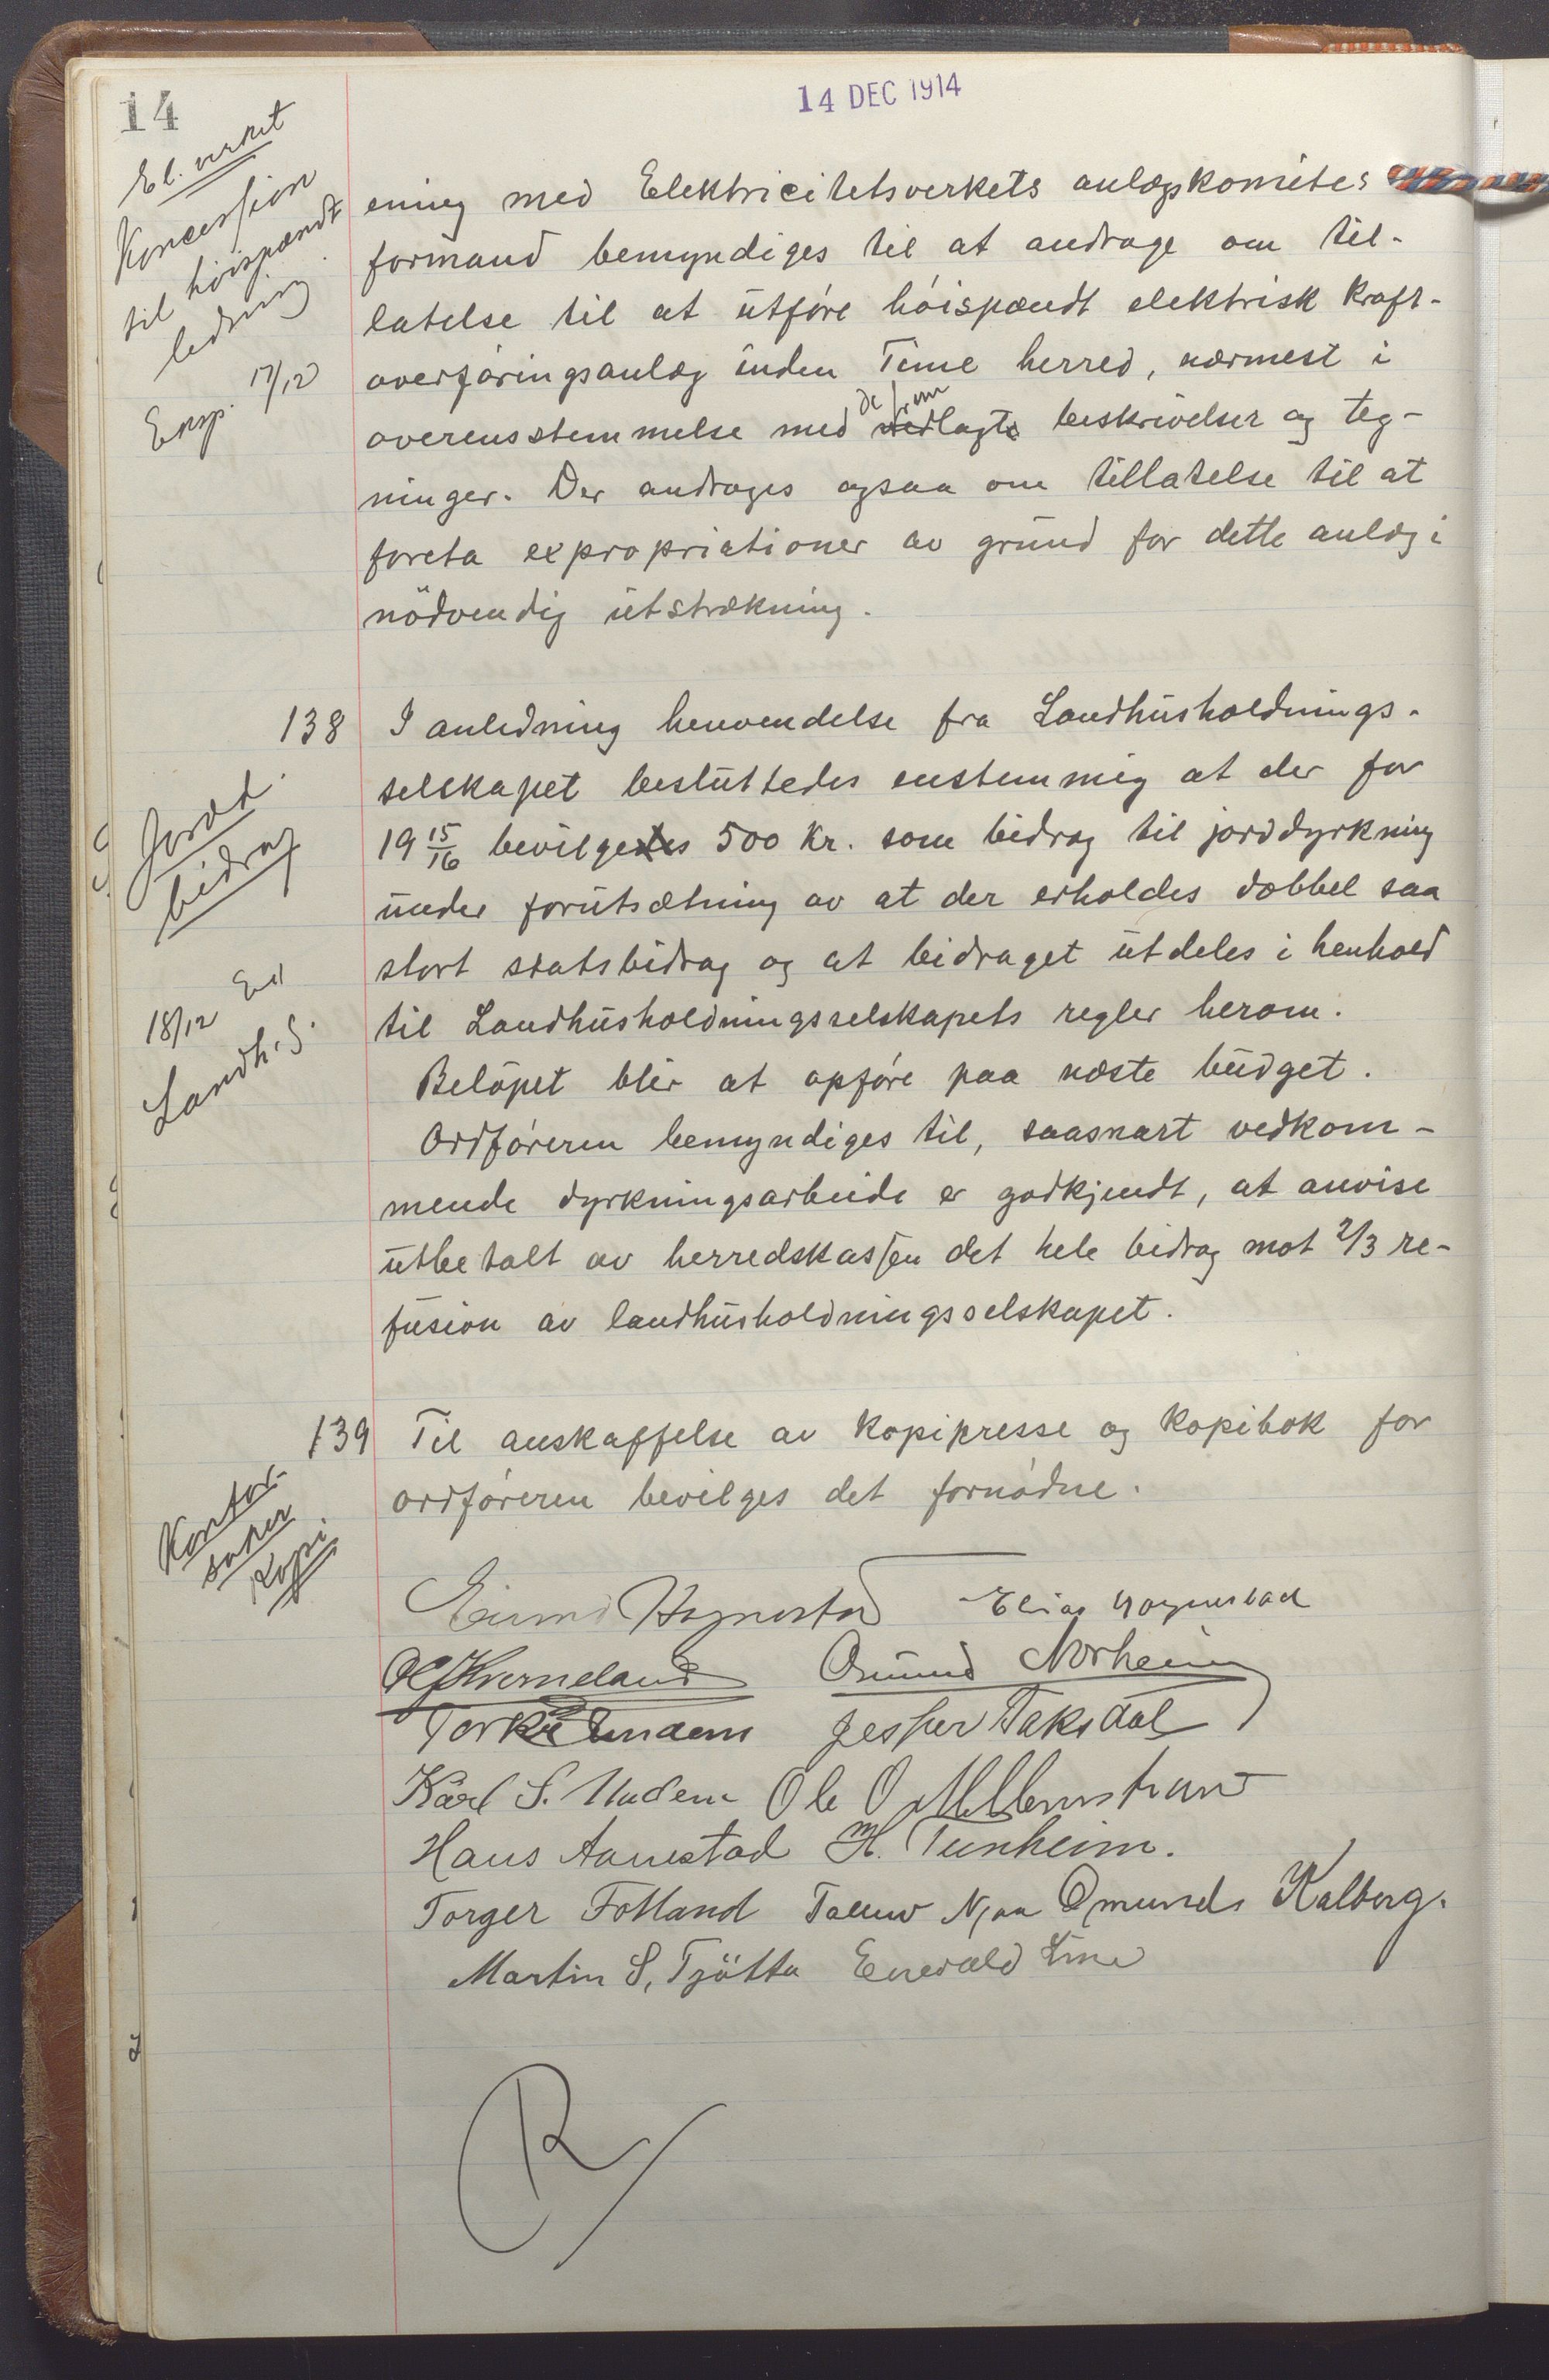 14
14 DEC 1914
El. verket
Koncession
til höispændt
ledning
Exp. 17/12
ening med Elektricitetsverkets anlægskomites
formand bemyndiges til at andrage om til-
latelse til at utføre høispændt elektrisk kraft-
overføringsanlæg inden Time herred, nærmest i
overensstemmelse med de fremlagte beskrivelser og teg-
ninger. Der andrages ogsaa om tillatelse til at
foreta expropriationer av grund for dette anlæg i
nödvendig utstrækning.
138
Jordd.
bidrag
18/12
Landh. S.
I anledning henvendelse fra Landhusholdnings-
selskapet besluttedes enstemmig at der for
19 15/16 bevilges 500 kr. som bidrag til jorddyrkning
under forutsætning av at der erholdes dobbel saa
stort statsbidrag og at bidraget utdeles i henhold
til Landhusholdningsselskapets regler herom.
Beløpet blir at opføre paa næste budget.
Ordføreren bemyndiges til, saasnart vedkom-
mende dyrkningsarbeide er godkjendt, at anvise
utbetalt av herredskassen det hele bidrag mot 2/3 re-
fusion av landhusholdningsselskapet.
139
Kontor-
saker
Kopi.
Til anskaffelse av kopipresse og kopibok for
ordføreren bevilges det fornødne.
Elias Hognestad
Kverneland Osmund Norheim
Jesper Taksdal
Karl S. Undem Ole O
Hans Aanestad H. Tunheim.
Torger Fotland Njaa Omund Kalberg.
Martin S. Tjötta Enevald Line